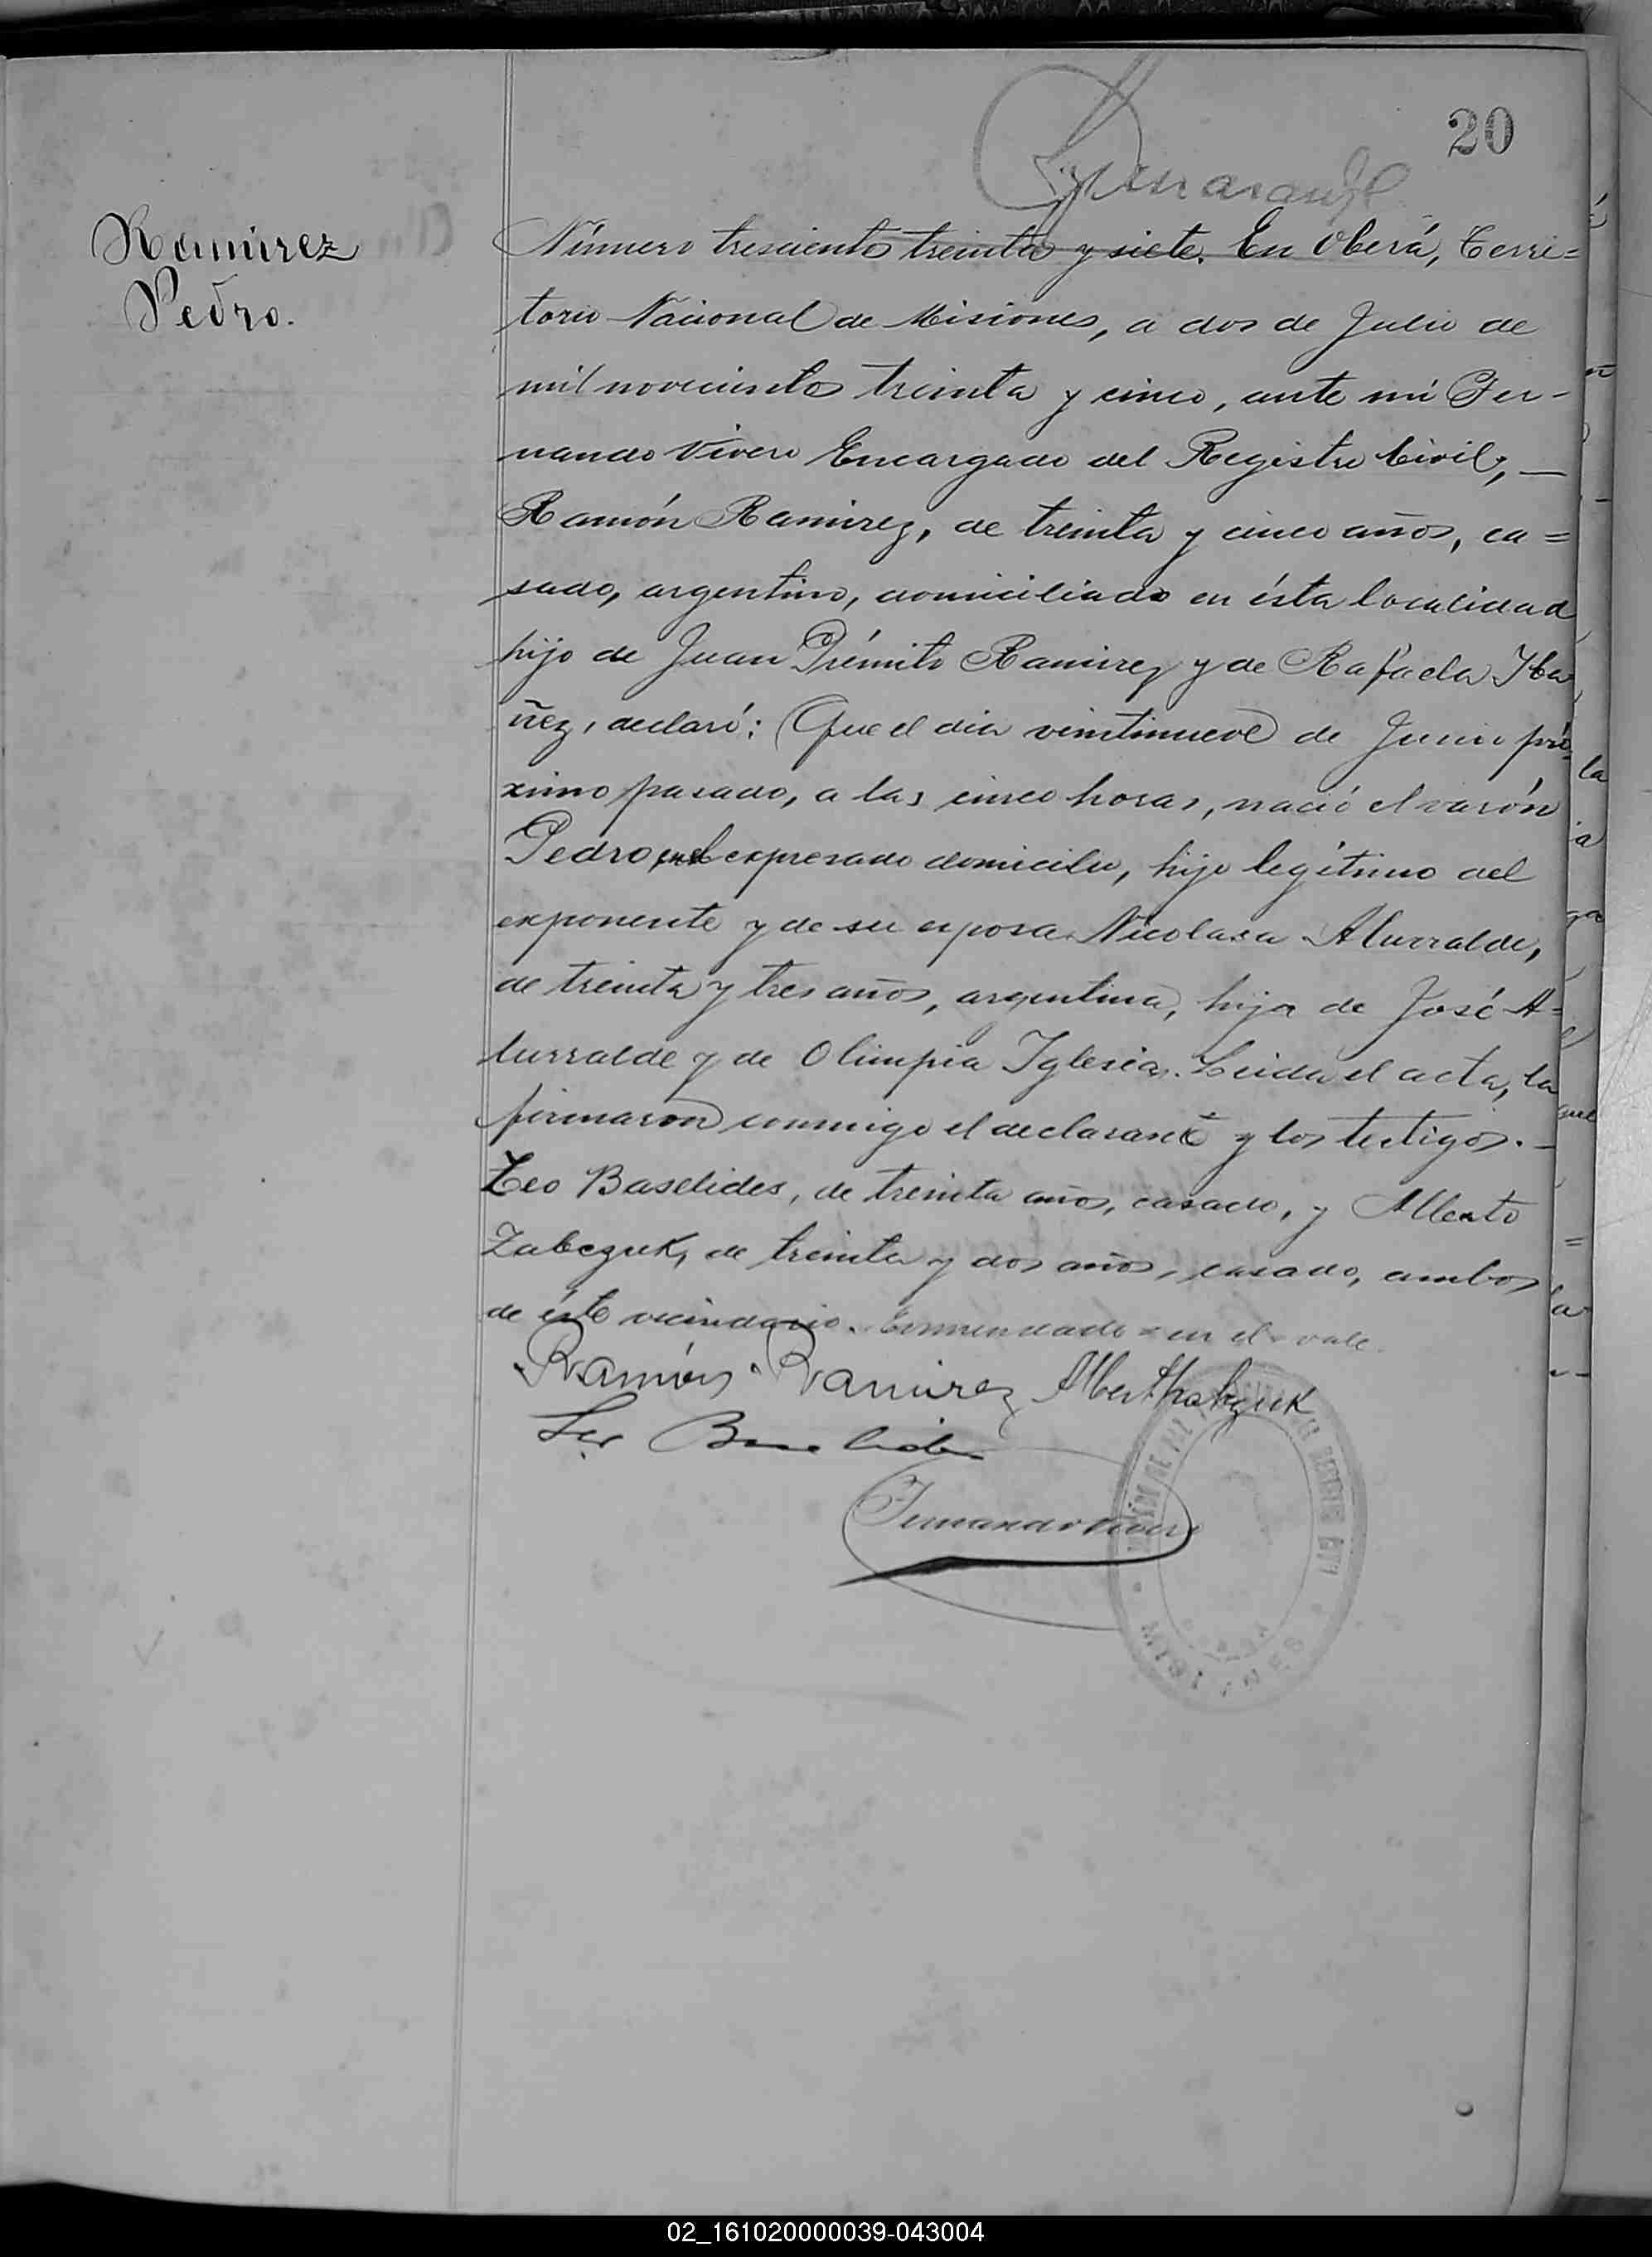 20
Ramirez
Pedro.
Número trescientos treinta y siete. En Oberá, Terri=
torio Nacional de Misiones, a dos de Julio de
mil novecientos treinta y cinco, ante mi Fer-
nando Vivero Encargado del Registro Civil, —
Ramón Ramirez, de treinta y cinco años, ca=
sado, argentino, domiciliado en ésta localidad
hijo de Juan Ramirez y de Rafaela Iba
ñez, declaró: Que el dia veintinueve de Junio pró-
ximo pasado, a las cinco horas, nació el varón
Pedro, en el expresado domicilio, hijo legítimo del
exponente y de su esposa Nicolasa Aturralde,
de treinta y tres años, argentina, hija de José A=
turralde y de Olimpia Iglesia. Leida el acta, la
firmaron conmigo el declarante y los testigos. —
Leo Baselides, de treinta años, casado, y Alberto
Zabczuk, de treinta y dos años, casado, ambos
de éste vecindario. Enmendado = en el = vale.
Ramón Ramirez
Leo Baselides
Fernando Vivero
REGISTRO CIVIL
MISIONES
02_161020000039-043004